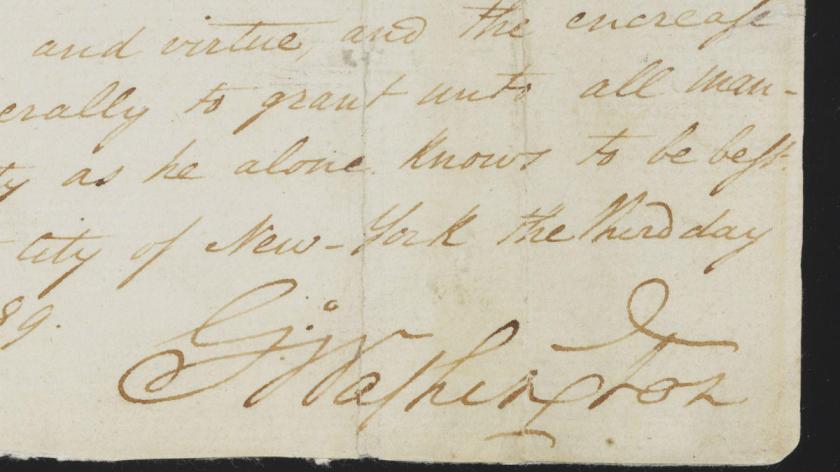 and virtue, and the encrease
erally to grant unto all man-
ty as he alone knows to be best.
City of New-York the third day
89.
G:Washington